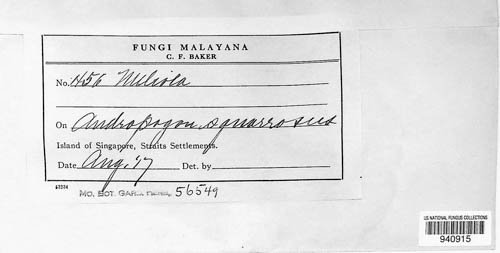 FUNGI MALAYANA
C. F. BAKER
No. 456 Meliola
On Andropogon squarrosus
Island of Singapore, Straits Settlements.
Date Aug. '17 Det. by
MO. BOT. GARD. 56549
US NATIONAL FUNGUS COLLECTIONS
940915